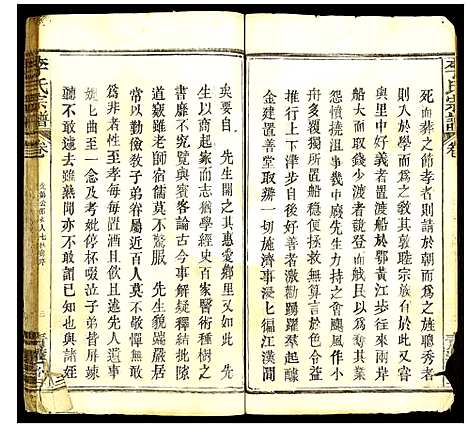 李氏宗譜
死而葬之節孝者則請於朝而為之旌聰秀者
則入於學而為之教其敦睦宗族大都類是
奧里中好義者置渡船於鄂黃江步往來兩岸
船大而取錢少渡者居民以為至便而
怨憤撓沮事幾中廢先生力持之會颶風作小
舟多覆獨所創船得拯救無算善良形色合益
推行上下津步自後好善者激勸踴躍羣起醵
金建置善堂取辦一切施濟事七徧江漢間
矣要自　先生開之其惠愛鄉里又如此　先
生以商起家而志猶學經史百家醫術種樹之
書靡不究覽與賓客論古今事解疑釋結批隙
道竅雖老師宿儒莫不驚服　先生貌端嚴居
家以勤儉教子弟眷屬近百人莫不憚無敢
為非者性至孝每毎置酒且飲且述先人遺事
娓七曲至一念及考妣停杯啜泣子弟皆屏竦
聽不敢去雖熟聞亦不敢謂已知也與諸姪
李氏宗譜
卷